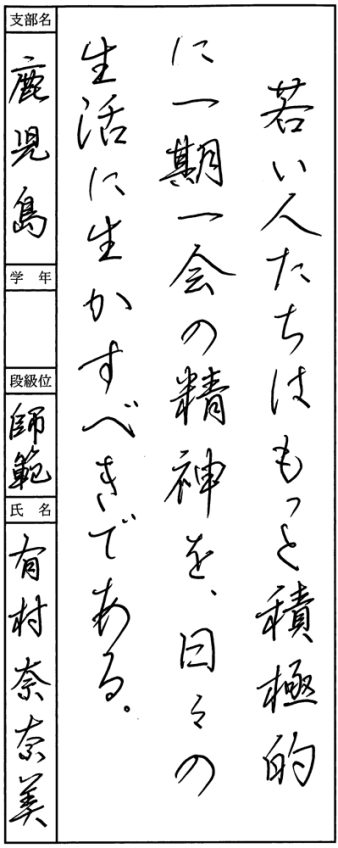 若い人たちはもっと積極的
に一期一会の精神を、日々の
生活に生かすべきである。
支部名
鹿児島
学年
段級位
師範
氏名
有村奈奈美